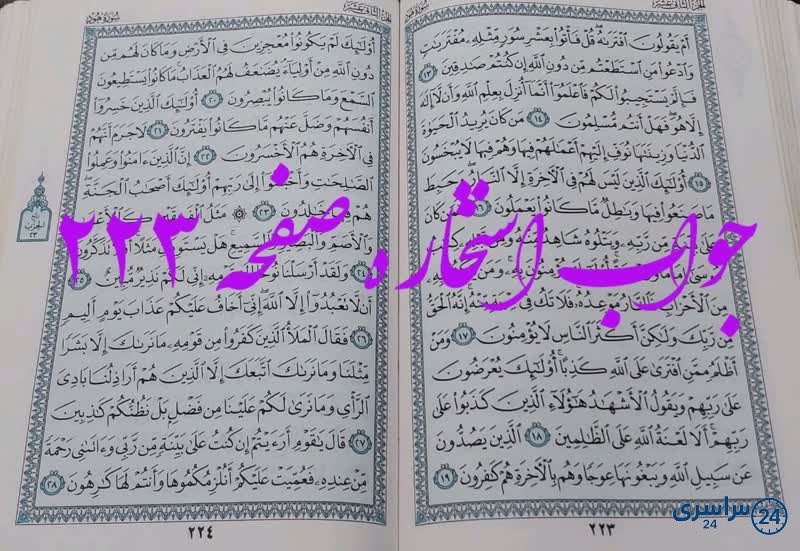 الجزء الثاني عشر
سورة هود
أَمْ يَقُولُونَ افْتَرَاهُ قُلْ فَأْتُوا بِعَشْرِ سُوَرٍ مِثْلِهِ مُفْتَرَيَاتٍ
وَادْعُوا مَنِ اسْتَطَعْتُمْ مِنْ دُونِ اللَّهِ إِنْ كُنْتُمْ صَادِقِينَ ١٣
فَإِلَّمْ يَسْتَجِيبُوا لَكُمْ فَاعْلَمُوا أَنَّمَا أُنْزِلَ بِعِلْمِ اللَّهِ وَأَنْ لَا إِلَهَ
إِلَّا هُوَ فَهَلْ أَنْتُمْ مُسْلِمُونَ ١٤ مَنْ كَانَ يُرِيدُ الْحَيَوٰةَ
الدُّنْيَا وَزِينَتَهَا نُوَفِّ إِلَيْهِمْ أَعْمَالَهُمْ فِيهَا وَهُمْ فِيهَا لَا يُبْخَسُونَ
١٥ أُولَٰئِكَ الَّذِينَ لَيْسَ لَهُمْ فِي الْآخِرَةِ إِلَّا النَّارُ وَحَبِطَ
مَا صَنَعُوا فِيهَا وَبَاطِلٌ مَا كَانُوا يَعْمَلُونَ ١٦ أَفَمَنْ كَانَ
عَلَىٰ بَيِّنَةٍ مِنْ رَبِّهِ وَيَتْلُوهُ شَاهِدٌ مِنْهُ وَمِنْ قَبْلِهِ كِتَابُ
مُوسَىٰ إِمَامًا يُؤْمِنُونَ بِهِ وَمَنْ
مِنَ الْأَحْزَابِ فَالنَّارُ مَوْعِدُهُ فَلَا تَكُ فِي مِرْيَةٍ مِنْهُ إِنَّهُ الْحَقُّ
مِنْ رَبِّكَ وَلَٰكِنَّ أَكْثَرَ النَّاسِ لَا يُؤْمِنُونَ ١٧ وَمَنْ
أَظْلَمُ مِمَّنِ افْتَرَىٰ عَلَى اللَّهِ كَذِبًا أُولَٰئِكَ يُعْرَضُونَ
عَلَىٰ رَبِّهِمْ وَيَقُولُ الْأَشْهَادُ هَٰؤُلَاءِ الَّذِينَ كَذَبُوا عَلَىٰ
رَبِّهِمْ أَلَا لَعْنَةُ اللَّهِ عَلَى الظَّالِمِينَ ١٨ الَّذِينَ يَصُدُّونَ
عَنْ سَبِيلِ اللَّهِ وَيَبْغُونَهَا عِوَجًا وَهُمْ بِالْآخِرَةِ هُمْ كَافِرُونَ ١٩
٢٢٣
الجزء الثاني عشر
سورة هود
أُولَٰئِكَ لَمْ يَكُونُوا مُعْجِزِينَ فِي الْأَرْضِ وَمَا كَانَ لَهُمْ مِنْ
دُونِ اللَّهِ مِنْ أَوْلِيَاءَ يُضَاعَفُ لَهُمُ الْعَذَابُ مَا كَانُوا يَسْتَطِيعُونَ
السَّمْعَ وَمَا كَانُوا يُبْصِرُونَ ٢٠ أُولَٰئِكَ الَّذِينَ خَسِرُوا
أَنْفُسَهُمْ وَضَلَّ عَنْهُمْ مَا كَانُوا يَفْتَرُونَ ٢١ لَا جَرَمَ أَنَّهُمْ
فِي الْآخِرَةِ هُمُ الْأَخْسَرُونَ ٢٢ إِنَّ الَّذِينَ آمَنُوا وَعَمِلُوا
الصَّالِحَاتِ وَأَخْبَتُوا إِلَىٰ رَبِّهِمْ أُولَٰئِكَ أَصْحَابُ الْجَنَّةِ
هُمْ فِيهَا خَالِدُونَ ٢٣ ۞ مَثَلُ الْفَرِيقَيْنِ كَالْأَعْمَىٰ
وَالْأَصَمِّ وَالْبَصِيرِ وَالسَّمِيعِ هَلْ يَسْتَوِيَانِ مَثَلًا أَفَلَا تَذَكَّرُونَ
٢٤ وَلَقَدْ أَرْسَلْنَا نُوحًا إِلَىٰ قَوْمِهِ إِنِّي لَكُمْ نَذِيرٌ مُبِينٌ ٢٥
أَنْ لَا تَعْبُدُوا إِلَّا اللَّهَ إِنِّي أَخَافُ عَلَيْكُمْ عَذَابَ يَوْمٍ أَلِيمٍ
٢٦ فَقَالَ الْمَلَأُ الَّذِينَ كَفَرُوا مِنْ قَوْمِهِ مَا نَرَاكَ إِلَّا بَشَرًا
مِثْلَنَا وَمَا نَرَاكَ اتَّبَعَكَ إِلَّا الَّذِينَ هُمْ أَرَاذِلُنَا بَادِيَ
الرَّأْيِ وَمَا نَرَىٰ لَكُمْ عَلَيْنَا مِنْ فَضْلٍ بَلْ نَظُنُّكُمْ كَاذِبِينَ
٢٧ قَالَ يَا قَوْمِ أَرَأَيْتُمْ إِنْ كُنْتُ عَلَىٰ بَيِّنَةٍ مِنْ رَبِّي وَآتَانِي رَحْمَةً
مِنْ عِنْدِهِ فَعُمِّيَتْ عَلَيْكُمْ أَنُلْزِمُكُمُوهَا وَأَنْتُمْ لَهَا كَارِهُونَ ٢٨
٢٢٤
ربع
الحزب
٢٣
جواب استخاره صفحه ۲۲۳
سراسری
24
24